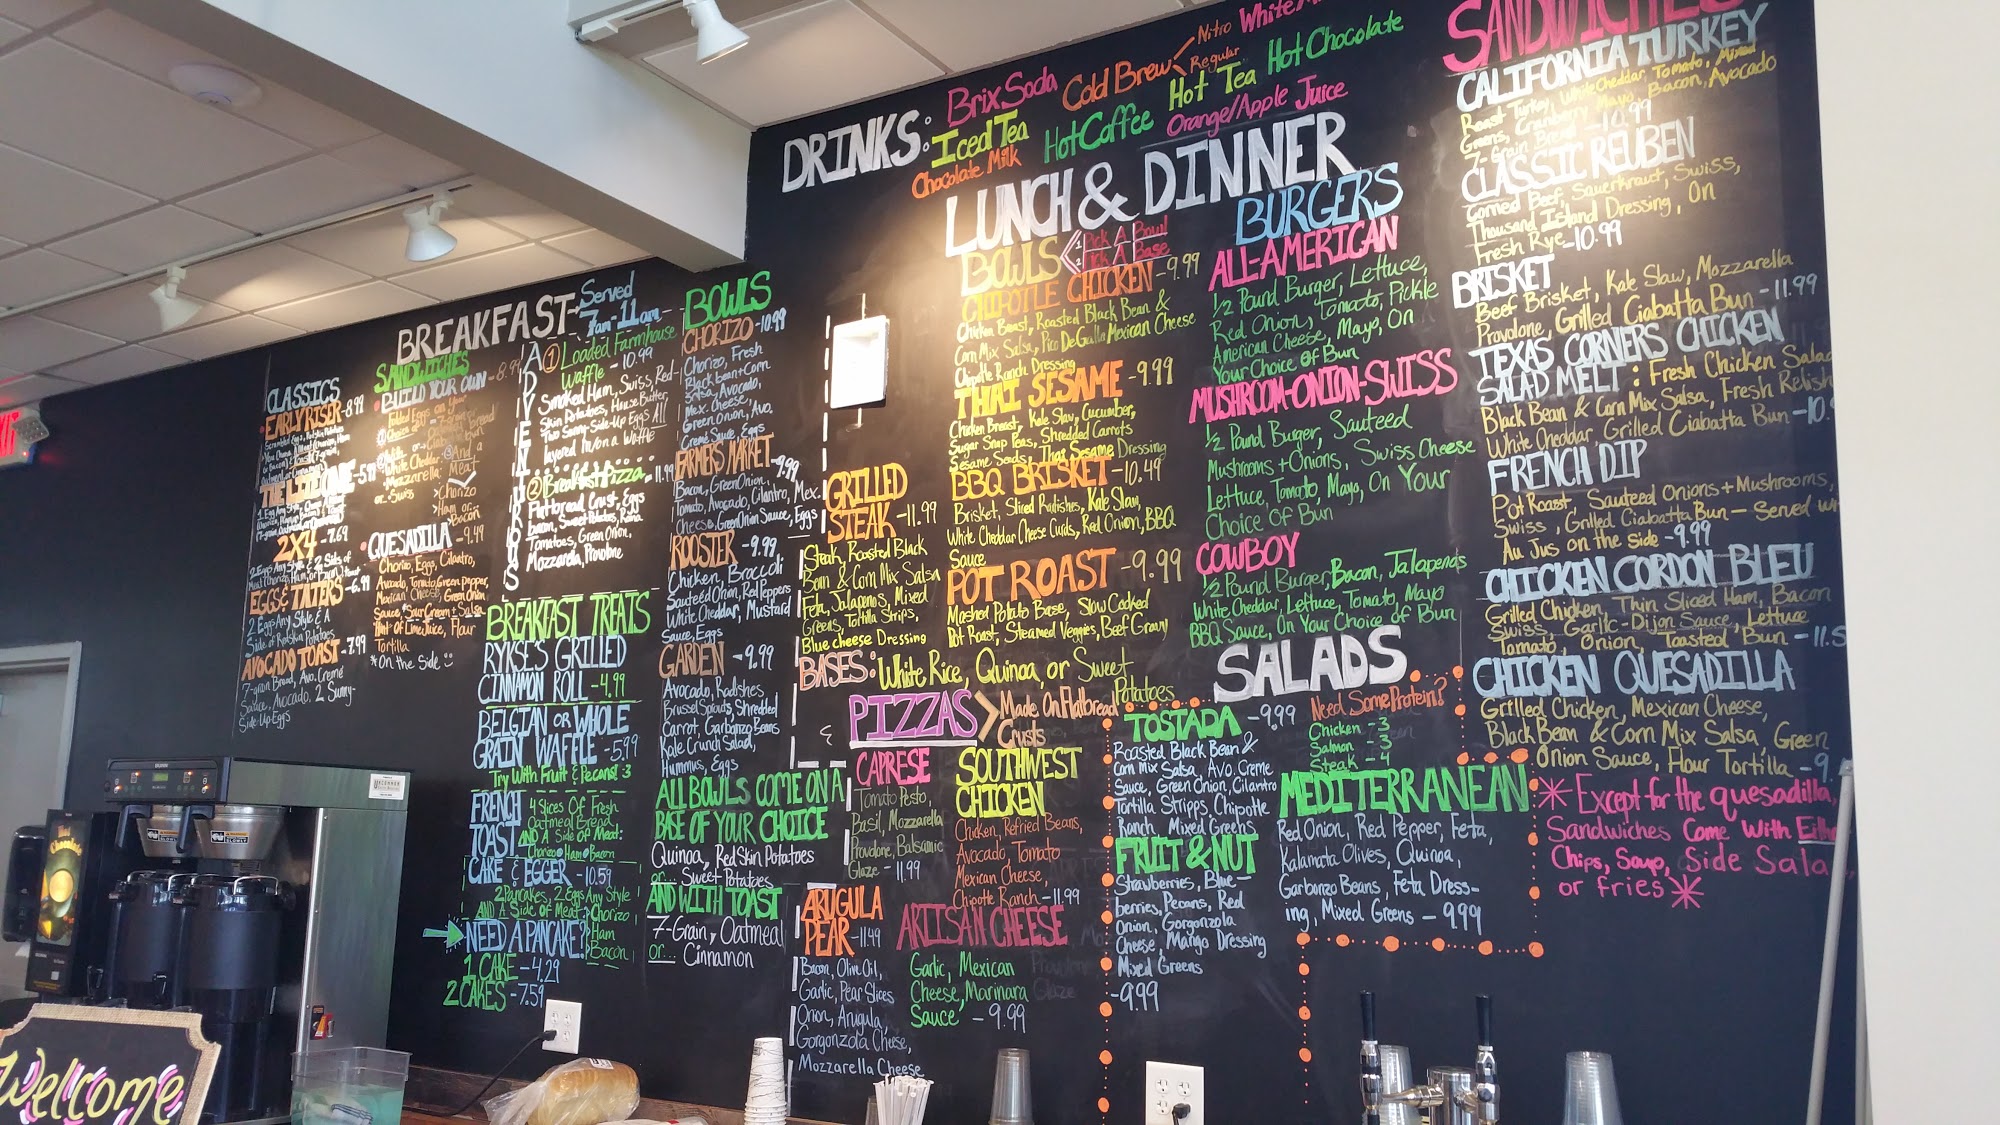 EXIT
BREAKFAST- Served
7am-11am
CLASSICS
EARLY RISER-8.99
THE LITE ONE-5.99
2X4-7.69
EGGS & TATERS-6.99
2 Eggs Any Style & A
Side of Redskin Potatoes
AVOCADO TOAST-7.99
7-grain Bread, Avo. Cremé
Sauce, Avocado, 2 Sunny-
Side-Up-Eggs
SANDWICHES
BUILD YOUR OWN
White Cheddar
Mozzarella
or Swiss
And a
Meat
>Chorizo
Ham or
>Bacon
QUESADILLA-9.49
Chorizo, Eggs, Cilantro,
Avocado, Tomato, Green Pepper,
Mexican Cheese, Green Onion
Sauce *Sour Cream + Salsa
Hint of Lime Juice, Flour
Tortilla
*On the Side
ADVENTUROUS
① Loaded Farmhouse
Waffle -10.99
Smoked Ham, Swiss, Red-
Skin Potatoes, House Butter,
Two Sunny-Side-Up Eggs All
layered in/on a Waffle
② Breakfast Pizza-11.99
Flatbread Crust, Eggs
bacon, Sweet Potatoes, Roma
Tomatoes, Green Onion,
Mozzarella, Provolone
BREAKFAST TREATS
RYKSE'S GRILLED
CINNAMON ROLL-4.99
BELGIAN OR WHOLE
GRAIN WAFFLE-5.99
Try With Fruit & Pecans! 3
FRENCH
TOAST
4 Slices Of Fresh
Oatmeal Bread
AND A Side of Meat:
Chorizo•Ham•Bacon
CAKE & EGGER-10.59
2 Pancakes, 2 Eggs Any Style
AND A Side of Meat
Chorizo
Ham
Bacon
NEED A PANCAKE?
1 CAKE-4.29
2 CAKES-7.59
BOWLS
CHORIZO-10.99
Chorizo, Fresh
Black bean+Corn
Salsa, Avocado,
Mex. Cheese,
Green Onion, Avo.
Cremé Sauce, Eggs
FARMERS MARKET-9.99
Bacon, Green Onion,
Tomato, Avocado, Cilantro, Mex.
Cheese, Green Onion Sauce, Eggs
ROOSTER-9.99
Chicken, Broccoli
Sauteéd Onion, Red Peppers
White Cheddar, Mustard
Sauce, Eggs
GARDEN-9.99
Avocado, Radishes
Brussel Sprouts, Shredded
Carrot, Garbanzo Beans
Kale Crunch Salad,
Hummus, Eggs
ALL BOWLS COME ON A
BASE OF YOUR CHOICE
Quinoa, Red Skin Potatoes
or... Sweet Potatoes
AND WITH TOAST
7-Grain, Oatmeal
or... Cinnamon
DRINKS:
Brix Soda
Cold Brew
Nitro
Regular
Iced Tea
Hot Coffee
Hot Tea
Hot Chocolate
Chocolate Milk
Orange/Apple Juice
LUNCH & DINNER
BOWLS
1 Pick A Bowl
2 Pick A Base
CHIPOTLE CHICKEN-9.99
Chicken Breast, Roasted Black Bean &
Corn Mix Salsa, Pico De Gallo Mexican Cheese
Chipotle Ranch Dressing
THAI SESAME-9.99
Chicken Breast, Kale Slaw, Cucumber,
Sugar Snap Peas, Shredded Carrots
Sesame Seeds, Thai Sesame Dressing
BBQ BRISKET-10.49
Brisket, Sliced Radishes, Kale Slaw,
White Cheddar Cheese Curds, Red Onion, BBQ
Sauce
POT ROAST-9.99
Mashed Potato Base, Slow Cooked
Pot Roast, Steamed Veggies, Beef Gravy
GRILLED
STEAK-11.99
Steak, Roasted Black
Bean & Corn Mix Salsa
Feta, Jalapenos, Mixed
Greens, Tortilla Strips,
Blue cheese Dressing
BASES: White Rice, Quinoa, or Sweet
Potatoes
PIZZAS
Made On Flatbread
Crusts
CAPRESE
Tomato Pesto,
Basil, Mozzarella
Provolone, Balsamic
Glaze - 11.99
SOUTHWEST
CHICKEN
Chicken, Refried Beans,
Avocado, Tomato
Mexican Cheese,
Chipotle Ranch-11.99
ARUGULA
PEAR-11.49
Bacon, Olive Oil,
Garlic, Pear Slices
Onion, Arugula,
Gorgonzola Cheese,
Mozzarella Cheese
ARTISAN CHEESE
Garlic, Mexican
Cheese, Marinara
Sauce - 9.99
BURGERS
ALL-AMERICAN
½ Pound Burger, Lettuce,
Red Onion, Tomato, Pickle
American Cheese, Mayo, On
Your Choice of Bun
MUSHROOM-ONION-SWISS
½ Pound Burger, Sauteed
Mushrooms + Onions, Swiss Cheese
Lettuce, Tomato, Mayo, On Your
Choice Of Bun
COWBOY
½ Pound Burger, Bacon, Jalapenos
White Cheddar, Lettuce, Tomato, Mayo
BBQ Sauce, On Your Choice of Bun
SALADS
TOSTADA-9.99
Roasted Black Bean &
Corn Mix Salsa, Avo. Creme
Sauce, Green Onion, Cilantro
Tortilla Stripps, Chipotle
Ranch, Mixed Greens
Need Some Protein?
Chicken - 3
Salmon - 3
Steak - 4
FRUIT & NUT
Strawberries, Blue-
berries, Pecans, Red
Onion, Gorgonzola
Cheese, Mango Dressing
Mixed Greens
-9.99
MEDITERRANEAN
Red Onion, Red Pepper, Feta,
Kalamata Olives, Quinoa,
Garbanzo Beans, Feta Dress-
ing, Mixed Greens - 9.99
SANDWICHES
CALIFORNIA TURKEY
Roast Turkey, White Cheddar, Tomato, Mixed
Greens, Cranberry Mayo, Bacon, Avocado
7-Grain Bread -10.99
CLASSIC REUBEN
Corned Beef, Sauerkraut, Swiss,
Thousand Island Dressing, On
Fresh Rye-10.99
BRISKET
Beef Brisket, Kale Slaw, Mozzarella
Provolone, Grilled Ciabatta Bun -11.99
TEXAS CORNERS CHICKEN
SALAD MELT: Fresh Chicken Salad
Black Bean & Corn Mix Salsa, Fresh Relish
White Cheddar, Grilled Ciabatta Bun-10.
FRENCH DIP
Pot Roast, Sauteed Onions + Mushrooms,
Swiss, Grilled Ciabatta Bun - Served w
Au Jus on the side -9.99
CHICKEN CORDON BLEU
Grilled Chicken, Thin Sliced Ham, Bacon
Swiss, Garlic-Dijon Sauce, Lettuce
Tomato, Onion, Toasted Bun -11.5
CHICKEN QUESADILLA
Grilled Chicken, Mexican Cheese,
Black Bean & Corn Mix Salsa, Green
Onion Sauce, Flour Tortilla - 9.
*Except for the quesadilla,
Sandwiches Come With Eith
Chips, Soup, Side Sala
or fries*
Hot
Chocolate
Welcome